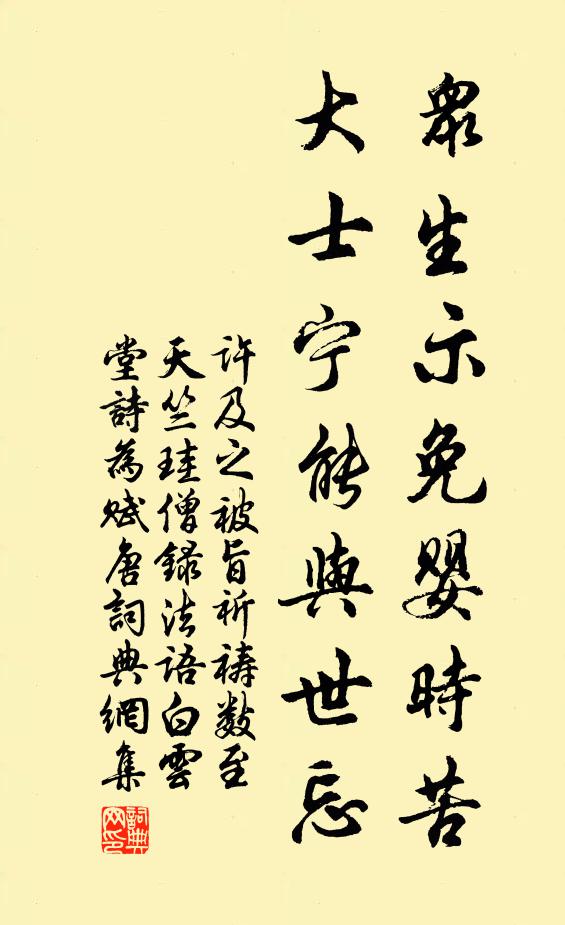 眾生示免嬰時苦
大士宁能與世忘
許及之被旨祈禱數至
天竺珪僧録法語白雲
堂詩為賦唐詞典網集
詞典网印